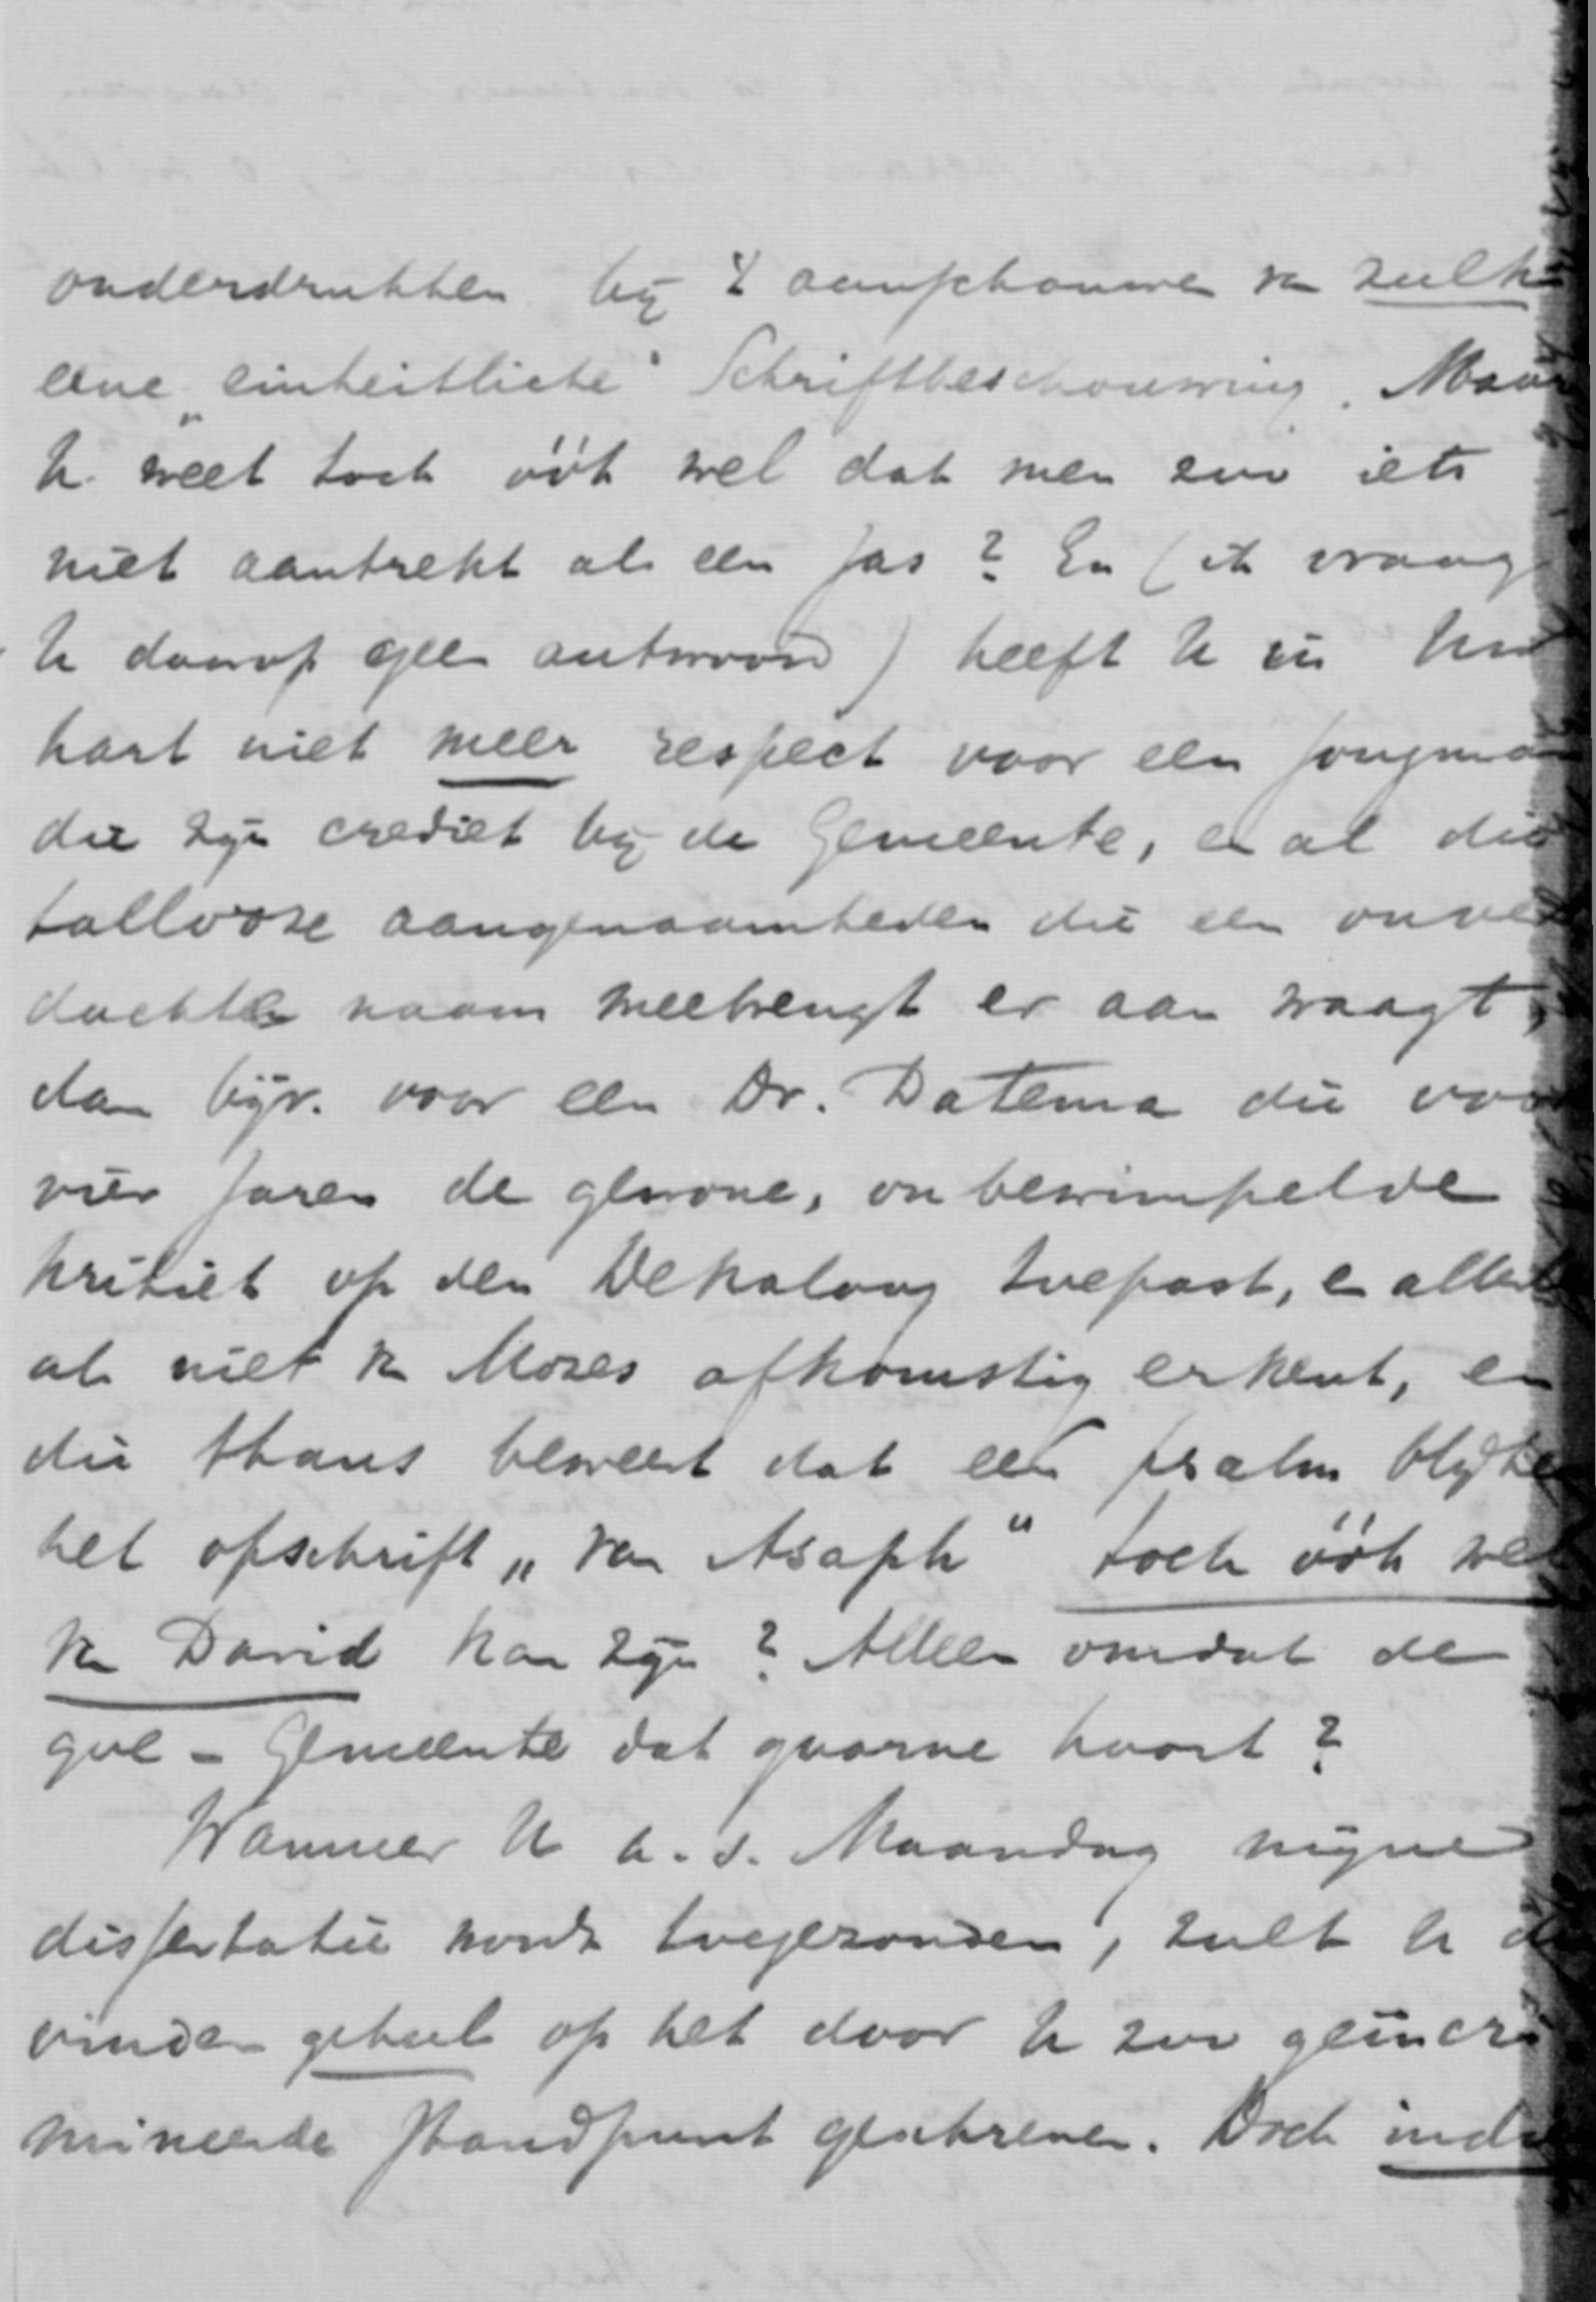 onderdrukken bij 't aanschouwen v. zulk
eene „einheitliche" Schriftbeschouwing. Maar
U weet toch óók wel dat men zoo iets
niet aantrekt als een jas? En (ik vraag
U daarop geen antwoord) heeft U in Uw
hart niet meer respect voor een jongman
die zijn crediet bij de Gemeente, en al die
tallooze aangenaamheden die een onver
dachte naam meebrengt er aan waagt,
dan bijv. voor een Dr. Datema die voor
vier jaren de gewone, onbewimpelde
kritiek op den Dekaloog toepast, en alles
als niet v. Mozes afkomstig erkent, en
die thans beweert dat een psalm blijkens
het opschrift „van Asaph" toch óók wel
v. David kan zijn? Alleen omdat de
goe-Gemeente dat gaarne hoort?
Wanneer U a.s. Maandag mijne
dissertatie wordt toegezonden, zult U die
vinden geheel op het door U zoo geïncri
mineerde standpunt geschreven. Doch